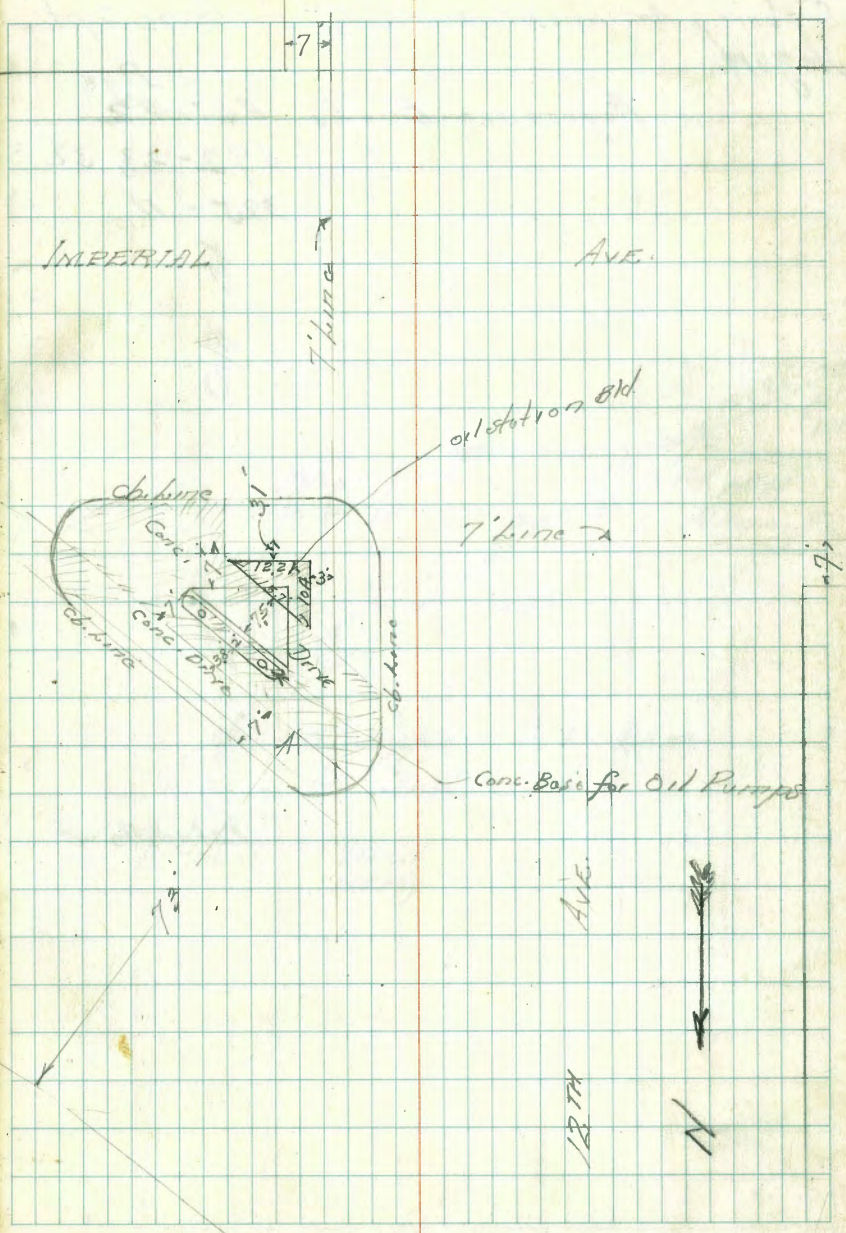 7
IMPERIAL AVE.
7' Line
oil station Bld.
Cb. Line
31'
7' Line
7
Conc.
7
12.2
3'
15.7
10.4
7'
7.5
Conc. Drive
33
Drive
Cb. Line
Cb. Line
7'
A
Conc. Base for Oil Pumps
AVE.
12TH
N